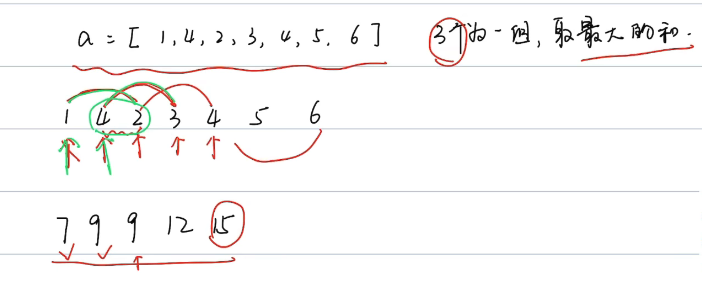 a = [ 1, 4, 2, 3, 4, 5, 6 ] 3个为一组, 取最大的和.
1 4 2 3 4 5 6
7 9 9 12 15